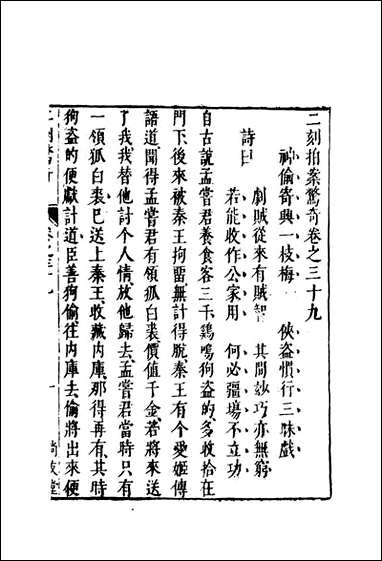 二刻拍案驚奇卷之三十九
神偷寄興一枝梅　俠盜慣行三昧戲
詩曰
劇賊從來有賊智　其間妙巧亦無窮
若能收作公家用　何必疆場不立功
自古說孟嘗君養食客三千雞鳴狗盜的多收拾在
門下後來被秦王拘留無計得脫秦王有个愛姬傳
語道聞得孟嘗君有領狐白裘價値千金若將來送
了我我替他討个人情放他歸去孟嘗君當時只有
一領狐白裘已送上秦王收藏内庫那得再有其時
狗盜的便獻計道臣善狗偷往内庫去偷將出來便